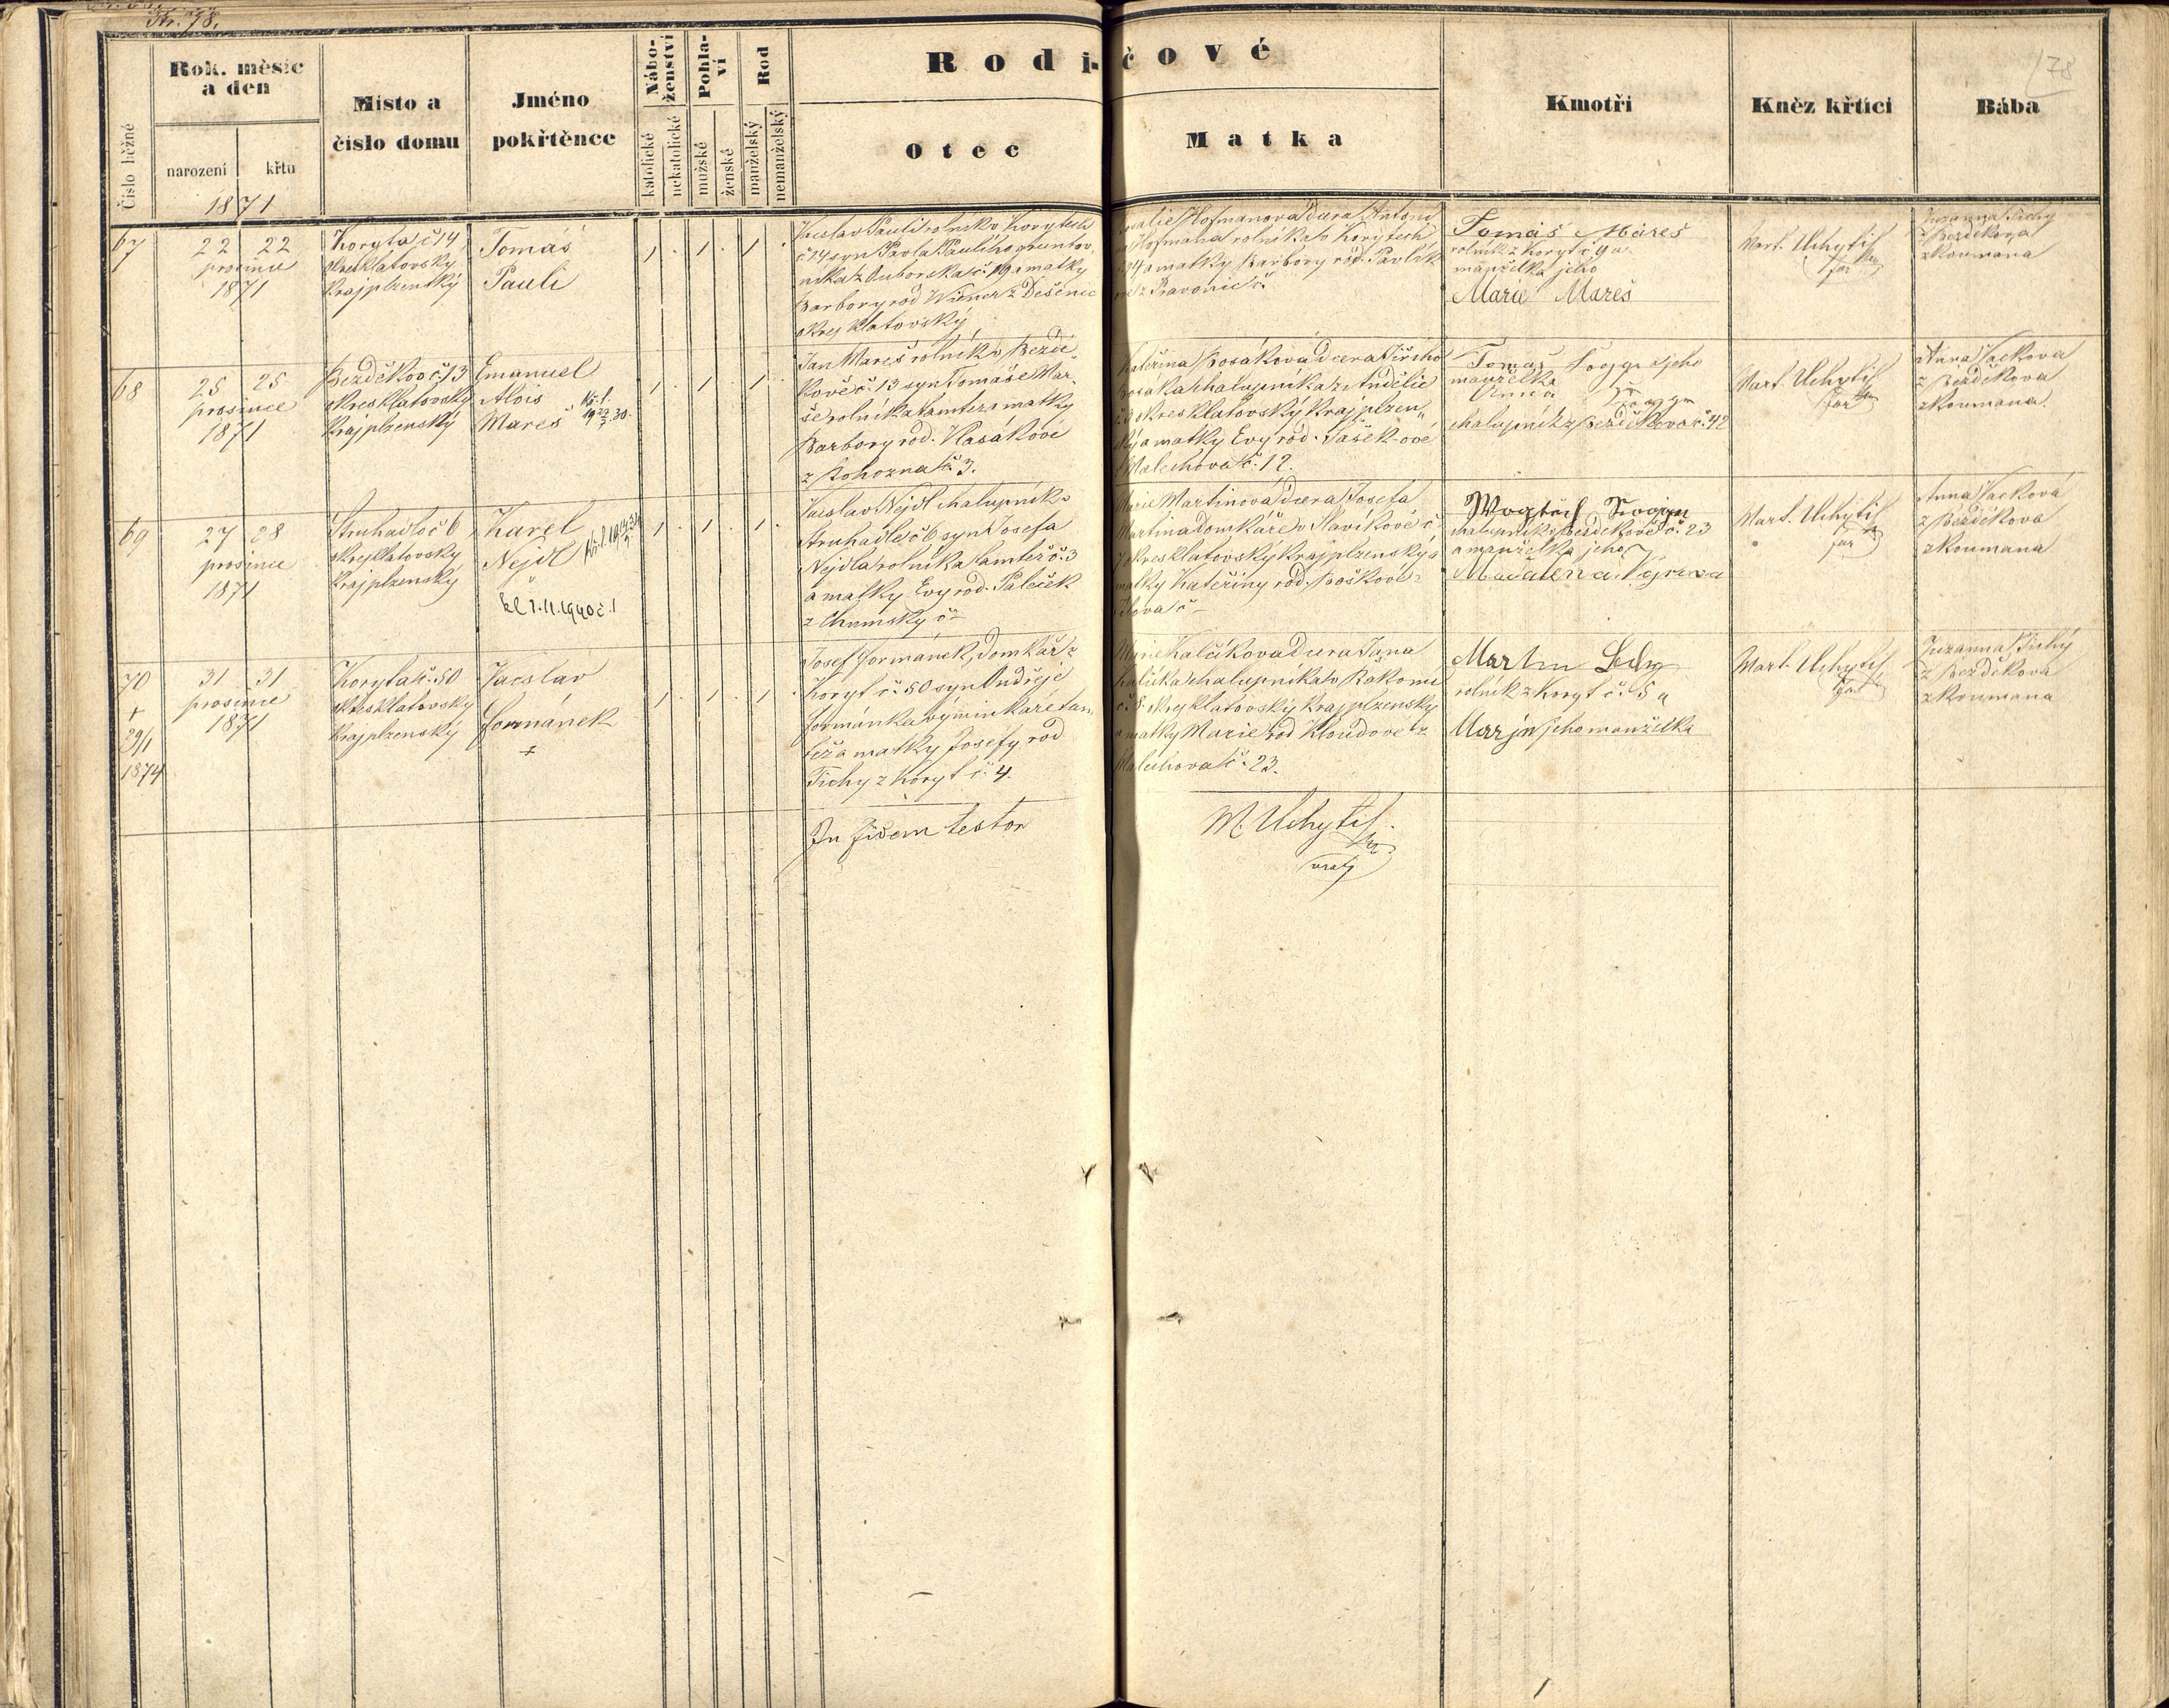 Str. 78.
178
Rok. měsíc
a den
Číslo běžné
narození
křtu
1871
Místo a
číslo domu
Jméno
pokřtěnce
Nábo-
ženství
katolické
nekatolické
Pohla-
ví
mužské
ženské
Rod
manželský
nemanželský
Rodi-
čové
Otec
Matka
Kmotři
Kněz křtící
Bába
67
22 22
prosince
1871
Koryta č 14
okres klatovský
Kraj plzenský
Tomáš
Pauli
1 . 1 . 1 .
Václav Pauli rolník v Korytech
č 14 syn Pavla Pauliho gruntov
níka z Duborska č. 19 a matky
Barbory rod Wiener z Dešenic
okrej klatovský
Hofmanova dcera Antoni
Hofmana rolníka v Korytech
a matky Barbory rod. Pavlík
Tomáš Mareš
rolník z Koryt č 9 a
manželka jeho
Marie Mareš
Mart. Uchytil
far
Zuzanna Tichy
z Bezděkova
zkoumana
68
25 25
prosince
1871
Bezděkov č. 13
okres klatovský
Kraj plzenský
Emanuel
Alois
Mareš
1 . 1 . 1 .
Jan Mareš rolník v Bezdě
kově č. 13 syn Tomáše Mar
še rolníka tamtéž a matky
Barbory rod. Hasákové
z Rohozna č. 3.
Kateřina Bosáková dcera Jiřího
Bosaka chalupníka z Andělic
č 3 okres klatovský Kraj plzen
ský a matky Evy rod. Tašek-ové
Malechova č. 12.
Tomáš a jeho
manželka
Anna
chalupník z Bezděkova č. 42
Mart. Uchytil
far
Anna Vacková
z Bezděkova
zkoumana
69
27 28
prosince
1871
Struhadlo č 6
okrej klatovský
Kraj plzenský
Karel
Nejdl
1. 11. 1940 č. 1
1 . 1 . 1 .
Václav Nejdl chalupník v
Struhadle č 6 syn Josefa
Nejdla rolníka tamtéž č. 3
a matky Evy rod. Paleček
z Chumsky č –
Marie Martinová dcera Josefa
Martina domkáře v Slavikově č
okres klatovský Kraj plzenský a
matky Kateřiny rod. Boškové z
chalupník v Bezděkově č. 23
a manželka jeho
Mart. Uchytil
far
Anna Vacková
z Bezděkova
zkoumana
70
†
29/1
1874
31 31
prosince
1871
Koryta č. 50
okres klatovský
Kraj plzenský
Václav
Formánek
†
1 . 1 . 1 .
Josef Formánek, domkář z
Koryt č. 50 syn Ondřeje
Formánka výminkáře tam
též a matky Josefy rod
Tichy z Koryt č. 4.
Marie Kalčíkova dcera Jana
chalupníka v Rakomi
č. 8. okrej klatovský Kraj plzenský
a matky Marie rod Kloudové z
Malechova č. 23.
Martin
rolník z Koryt č. 5 a
jeho manželka
Mart. Uchytil
far
Zuzanna Tichý
z Bezděkova
zkoumana
In fidem testor
M. Uchytil